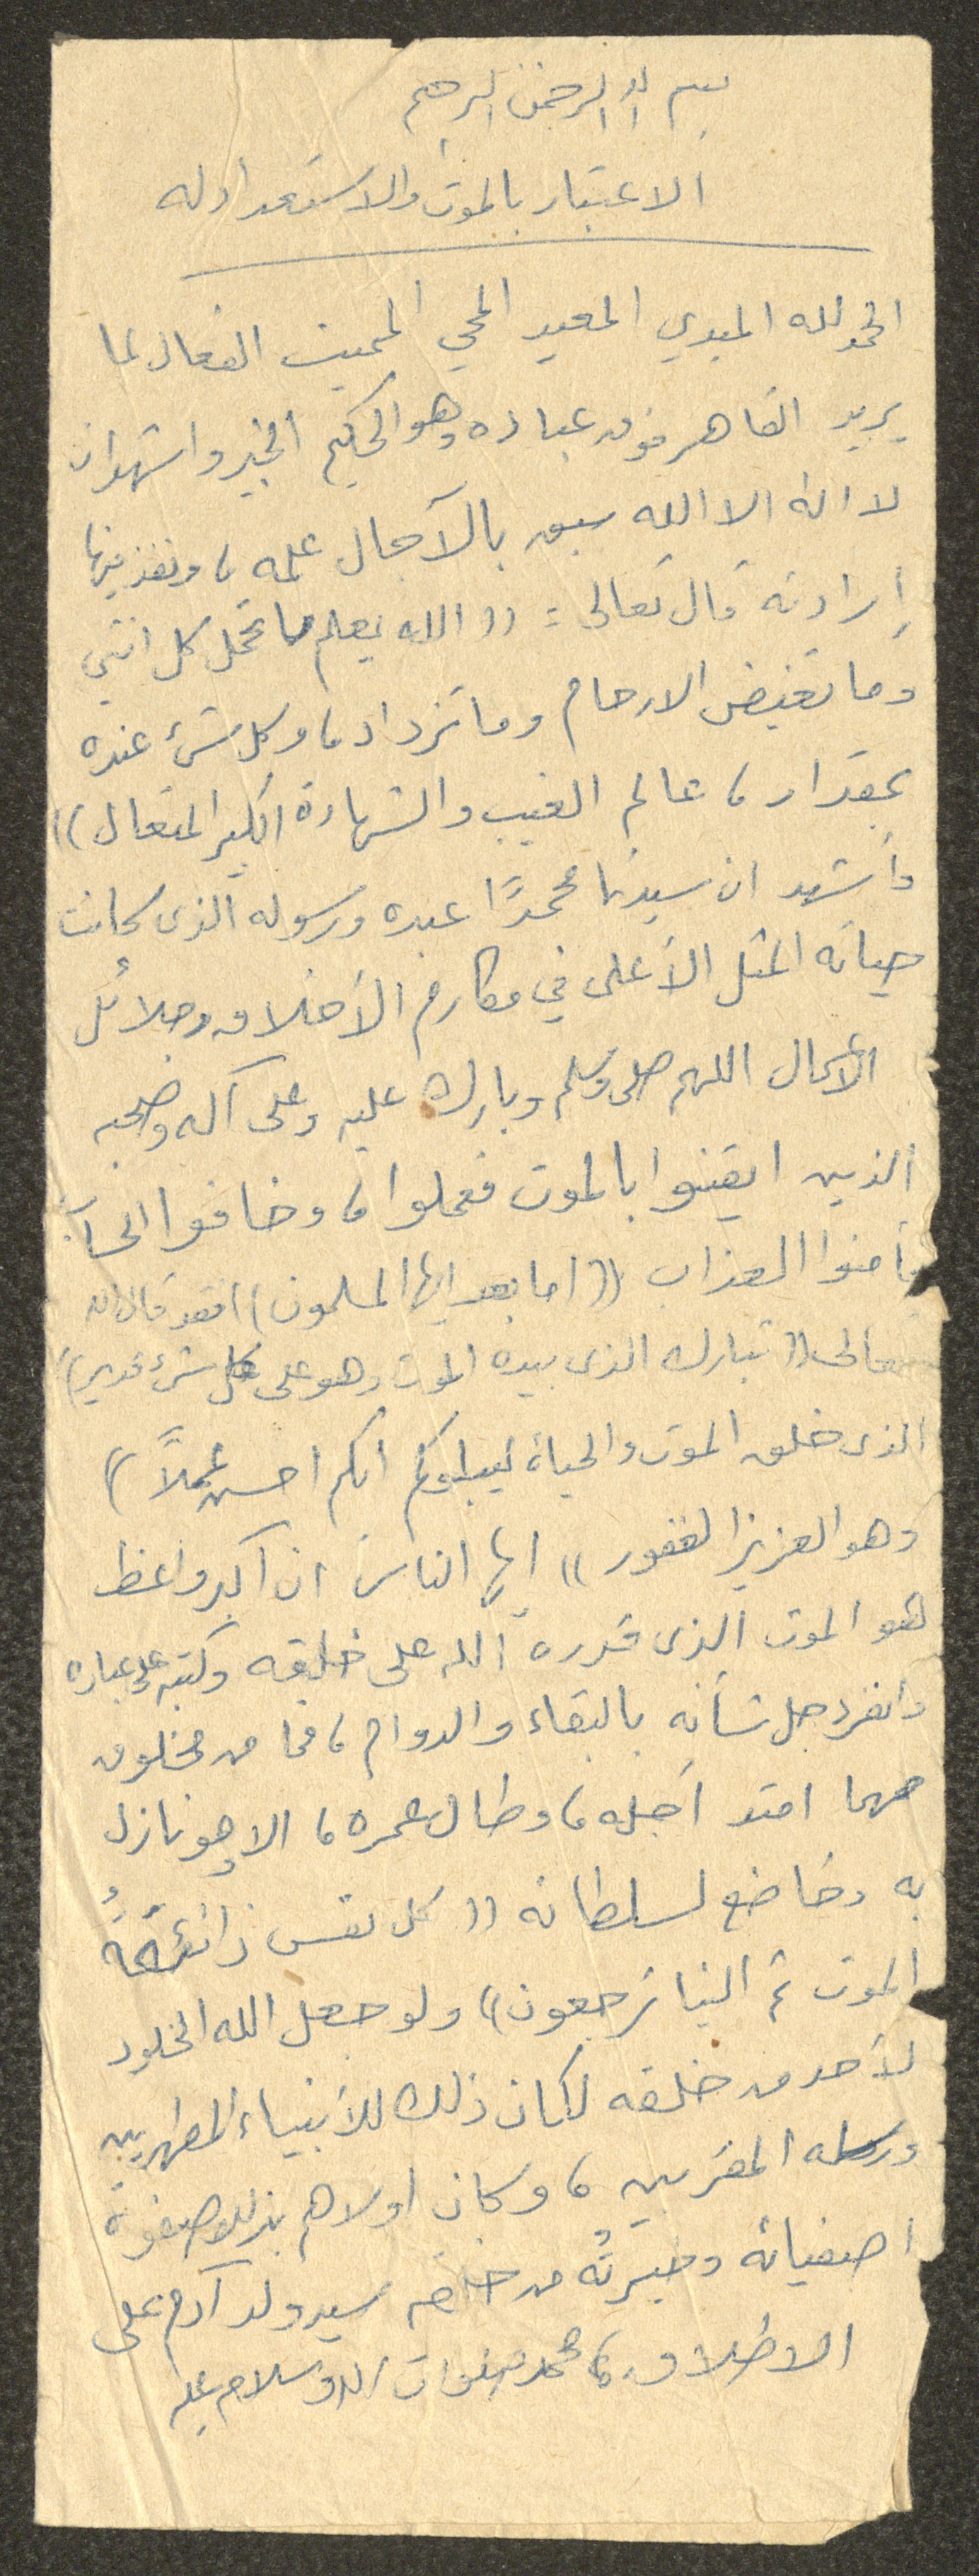 بسم الله الرحمن الرحيم
الاعتبار بالموت والاستعداد له
الحمد لله المبدي المعيد المحي المميت الفعال لما
يريد القاهر فوق عباده وهو الحكيم الخبير واشهد ان
لا اله الا الله سبق بالآجال علمه، ونفذ فيها
إرادته قال تعالى: ((الله يعلم ما تحمل كل انثى
وما تغيض الارحام وما تزداد، وكل شئ عنده
بمقدار، عالم الغيب والشهادة الكبير المتعال))
وأشهد ان سيدنا محمدًا عبده ورسوله الذى كانت
حياته المثل الأعلى في مكارم الأخلاق وجلائل
الاعمال اللهم صلى وسلم وبارك عليه وعلى آله وصحبه
الذين ايقنوا بالموت فعملوا، وخافوا الحساب
فأمنوا العذاب ((اما بعد ايها المسلمون)) فقد قال الله
تعالى ((تبارك الذى بيده الموت وهو على كل شئ قدير))
الذى خلق الموت والحياة ليبلوكم ايكم احسن عملاً))
وهو العزيز الغفور)) ايها الناس ان اكبر واعظ
لهو الموت الذى قدره الله على خلقه وكتبه على عباده
وانفرد جل شأنه بالبقاء والدوام، فما من مخلوق
مهما امتد أجله، وطال عمره، الا وهو نازل
به وخاضع لسلطانه ((كل نفس ذائقةُ
الموت ثم الينا ترجعون)) ولو جعل الله الخلود
لأحد من خلقه لكان ذلك للأنبياء المطهرين
ورسله المقربين، وكان اولاهم بذلك صفوة
اصفيائه وخيرته من خلقه سيد ولد آدم على
الاطلاق، محمد صلوات الله وسلامه عليه